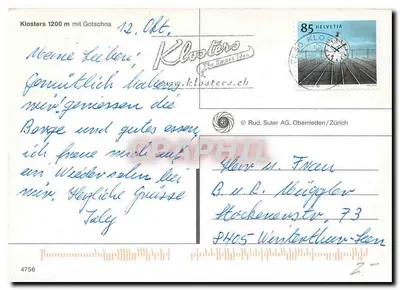 Klosters 1200 m mit Gotschna
12. Okt.
Meine Lieben!
Gemütlich haben
wir genießen die
Berge und gutes essen,
ich freue mich auf
ein Wiedersehn bei
mir. Herzliche Grüsse
July
Klosters
www.klosters.ch
85 HELVETIA
© Rud. Suter AG, Oberrieden/Zürich
Herr u. Frau
B. u. R. Müggler
Stockenerstr, 73
8405 Winterthur-Seen
2.-
4756